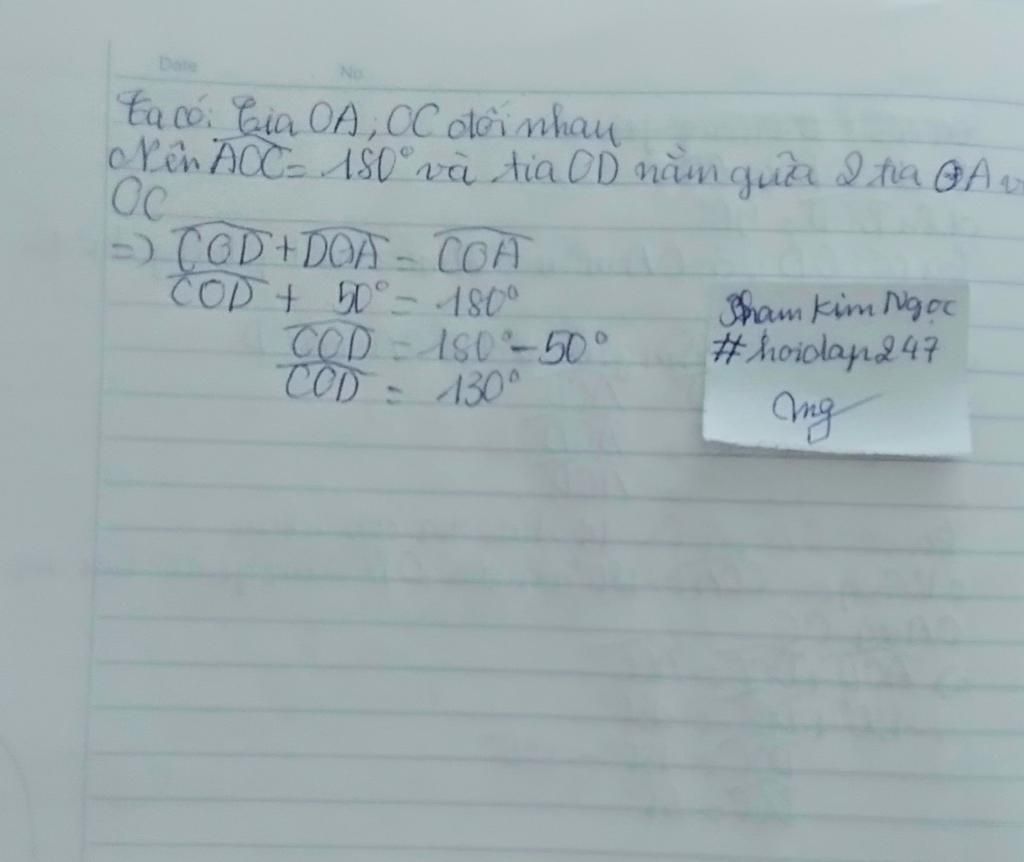 Date No.
Ta có: Tia OA, OC đối nhau
Nên AOC = 180° và tia OD nằm giữa 2 tia OA v
OC
=> COD + DOA = COA
COD + 50° = 180°
COD = 180° - 50°
COD = 130°
Pham Kim Ngọc
#hoidap247